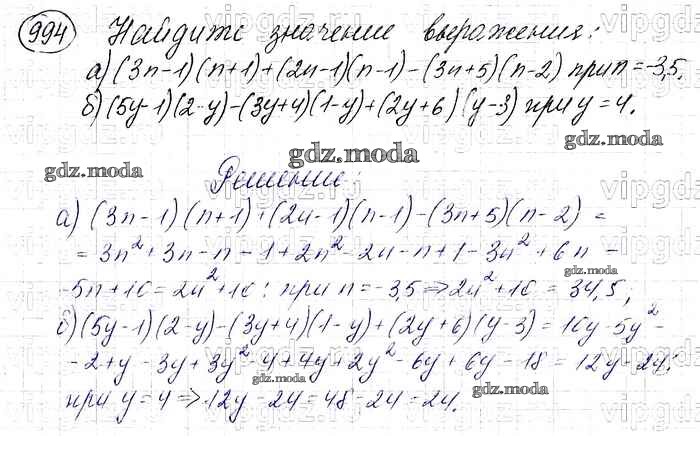 994 Найдите значение выражения:
а) (3n-1)(n+1)+(2n-1)(n-1)-(3n+5)(n-2) при n=-3,5;
б) (5y-1)(2-y)-(3y+4)(1-y)+(2y+6)(y-3) при y=4.
gdz.moda
gdz.moda
gdz.moda
Решение:
а) (3n-1)(n+1)+(2n-1)(n-1)-(3n+5)(n-2) =
= 3n²+3n-n-1+2n²-2n-n+1-3n²+6n-
gdz.moda
-5n+10=2n²+10; при n=-3,5⇒2n²+10=34,5;
б) (5y-1)(2-y)-(3y+4)(1-y)+(2y+6)(y-3) = 10y-5y²-
-2+y-3y+3y²-4+4y+2y²-6y+6y-18=12y-24;
gdz.moda
gdz.moda
при y=4⇒12y-24=48-24=24.